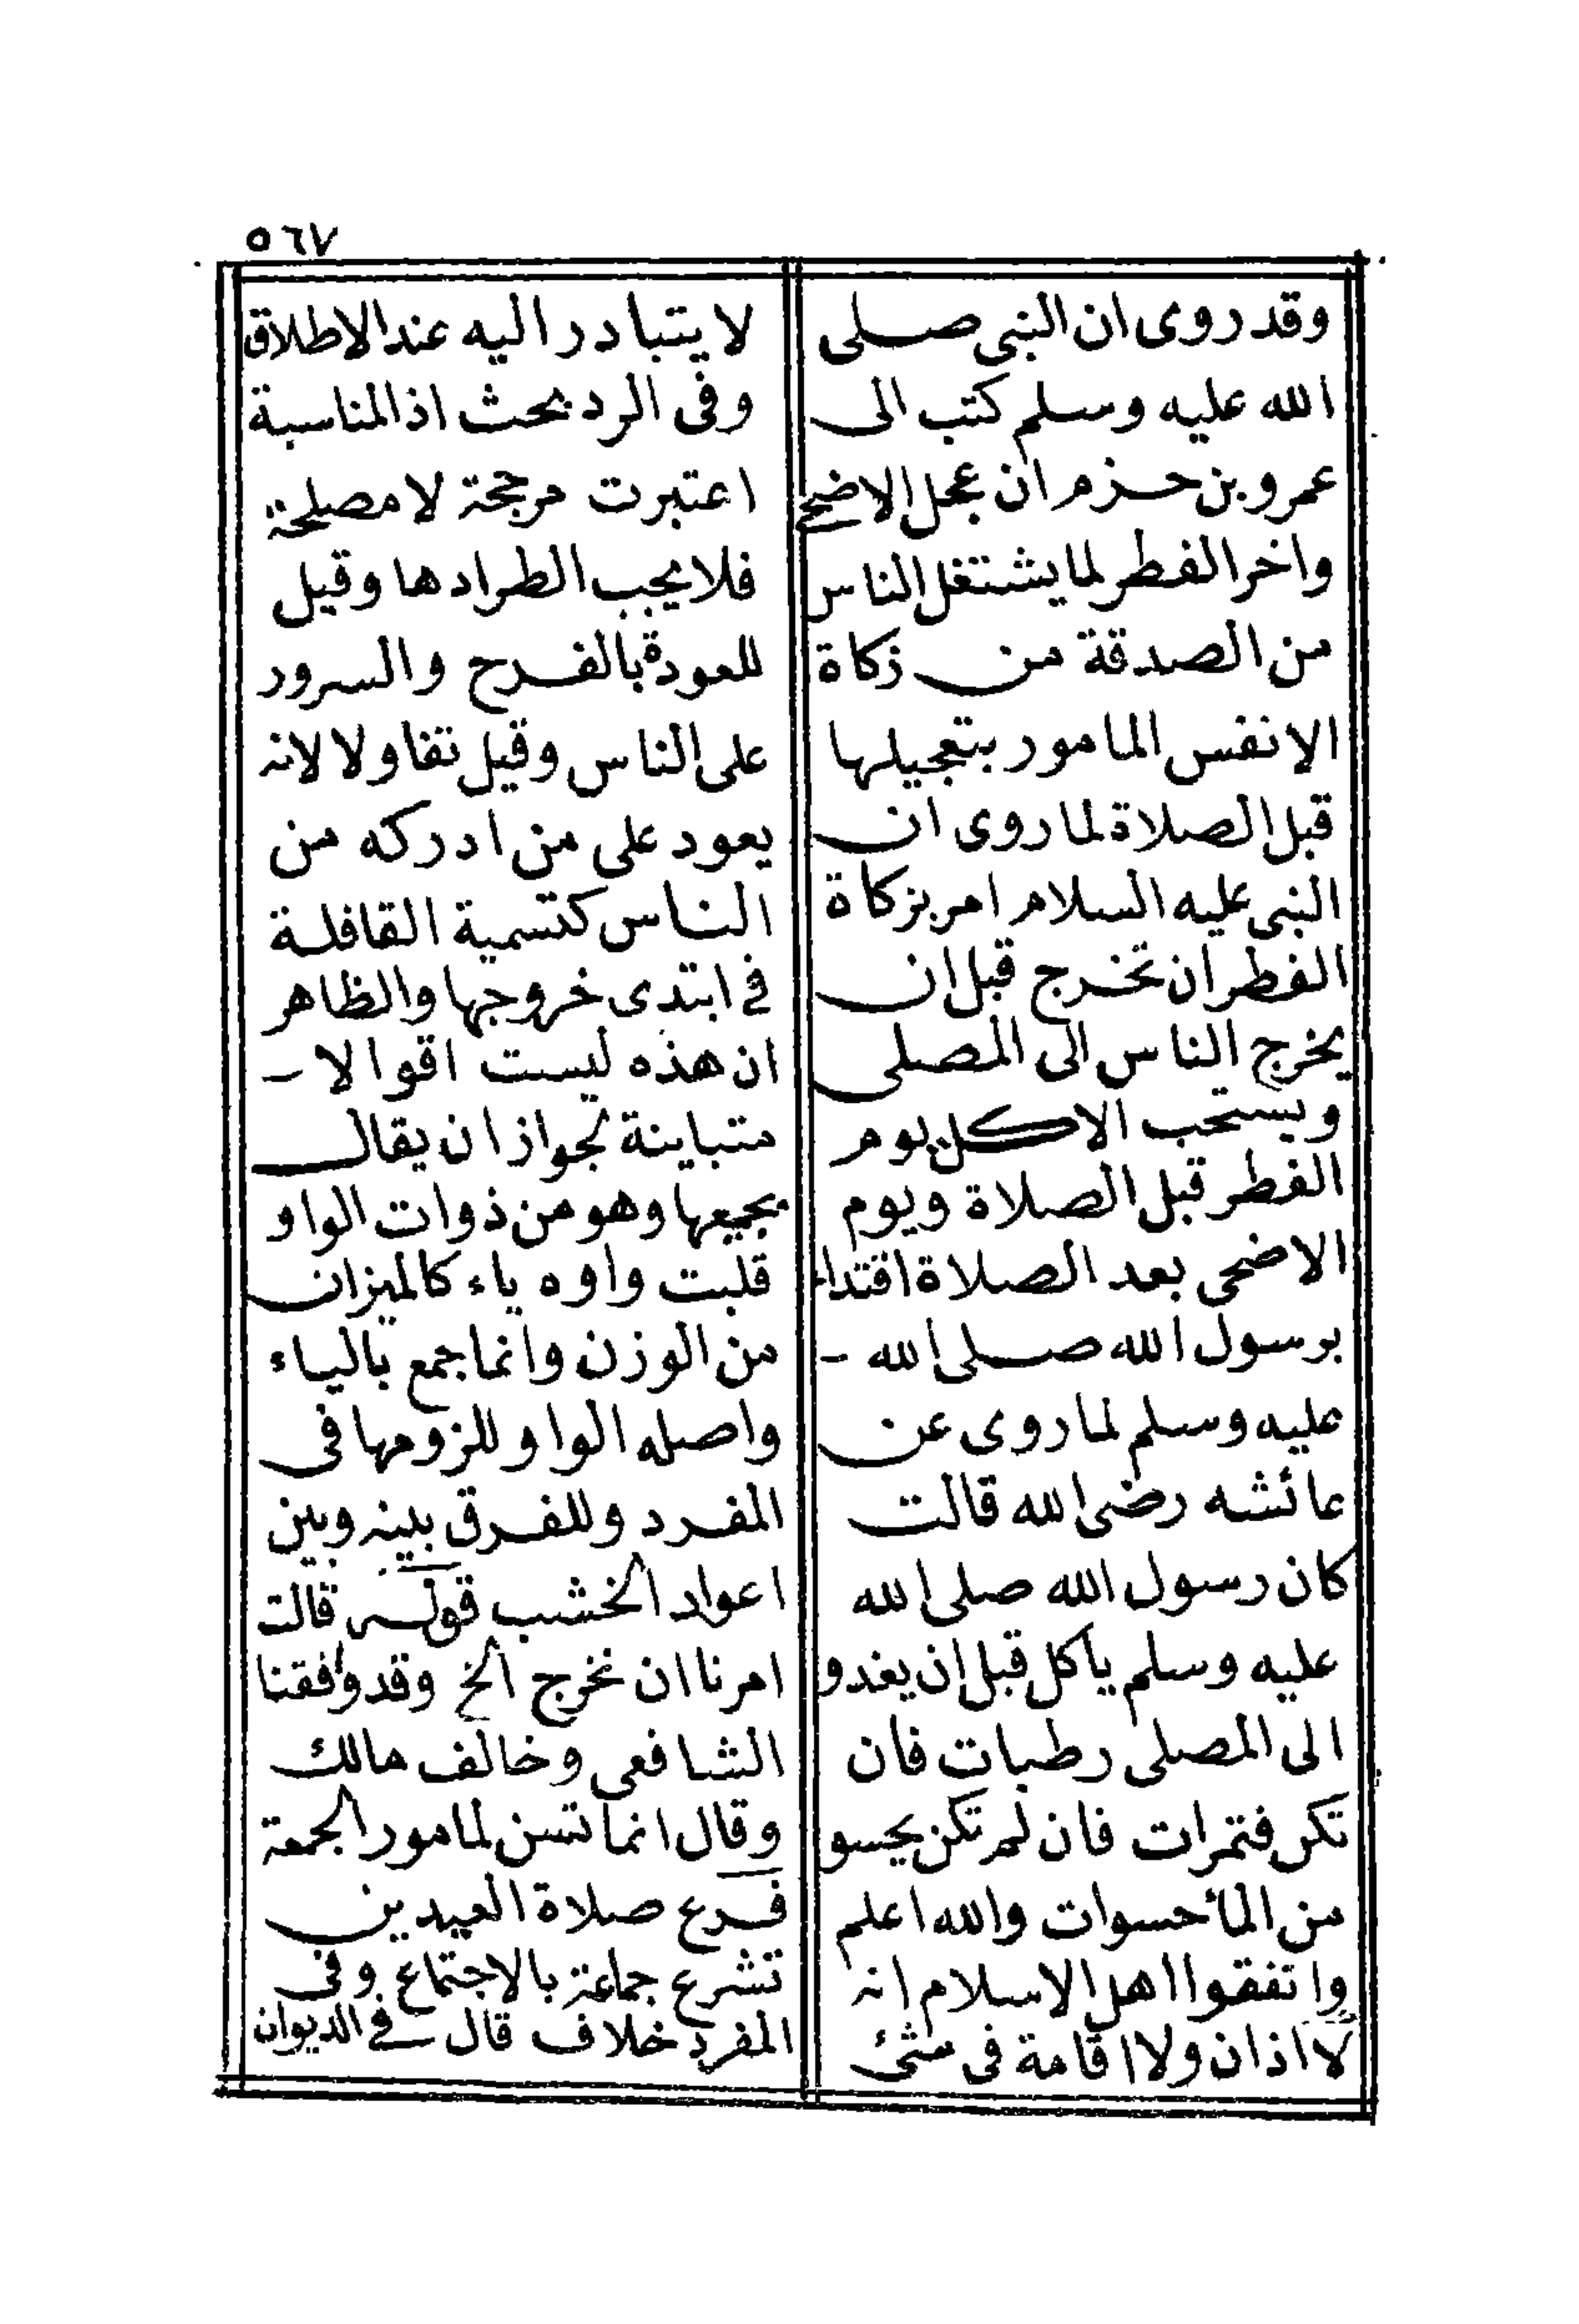 ٥٦٧
وقد روى ان النبى صلى
الله عليه وسلم كتب الى
عمرو بن حزم ان عجل الاضحى
واخر الفطر لما يشتغل الناس
من الصدقة من زكاة
الانفس المامور بتعجيلها
قبل الصلاة لما روى ان
النبى عليه السلام امر بزكاة
الفطر ان تخرج قبل ان
يخرج الناس الى المصلى
ويستحب الاكل يوم
الفطر قبل الصلاة ويوم
الاضحى بعد الصلاة اقتداء
برسول الله صلى الله -
عليه وسلم لما روى عن
عائشه رضى الله قالت
كان رسول الله صلى الله
عليه وسلم ياكل قبل ان يغدو
الى المصلى رطبات فان
تكن فتمرات فان لم تكن يحسو
من المأ حسوات والله اعلم
واتفقوا اهل الاسلام انه
لا اذان ولا اقامة فى شئ
لا يتبادر اليه عند الاطلاق
وفى الرد بحث اذ المناسبة
اعتبرت مرجحة لا مصلحة
فلا يجب الطرادها وقيل
للعودة بالفرح والسرور
على الناس وقيل تفاولا لانه
يعود على من ادركه من
الناس كتسمية القافلة
في ابتدى خروجها والظاهر
ان هذه ليست اقوالا -
متباينة لجواز ان يقال
بجميعها وهو من ذوات الواو
قلبت واوه ياء كالميزان
من الوزن وانما جمع بالياء
واصله الواو للزومها فى
المفرد وللفرق بينه وبين
اعواد الخشب قوله قالت
امرنا ان نخرج الخ وقد وافقنا
الشافعى وخالف مالك
وقال انما تسن لمامور الجمعة
فرع صلاة العيدين
تشرع جماعة بالاجتماع وفى
المفرد خلاف قال في الديوان